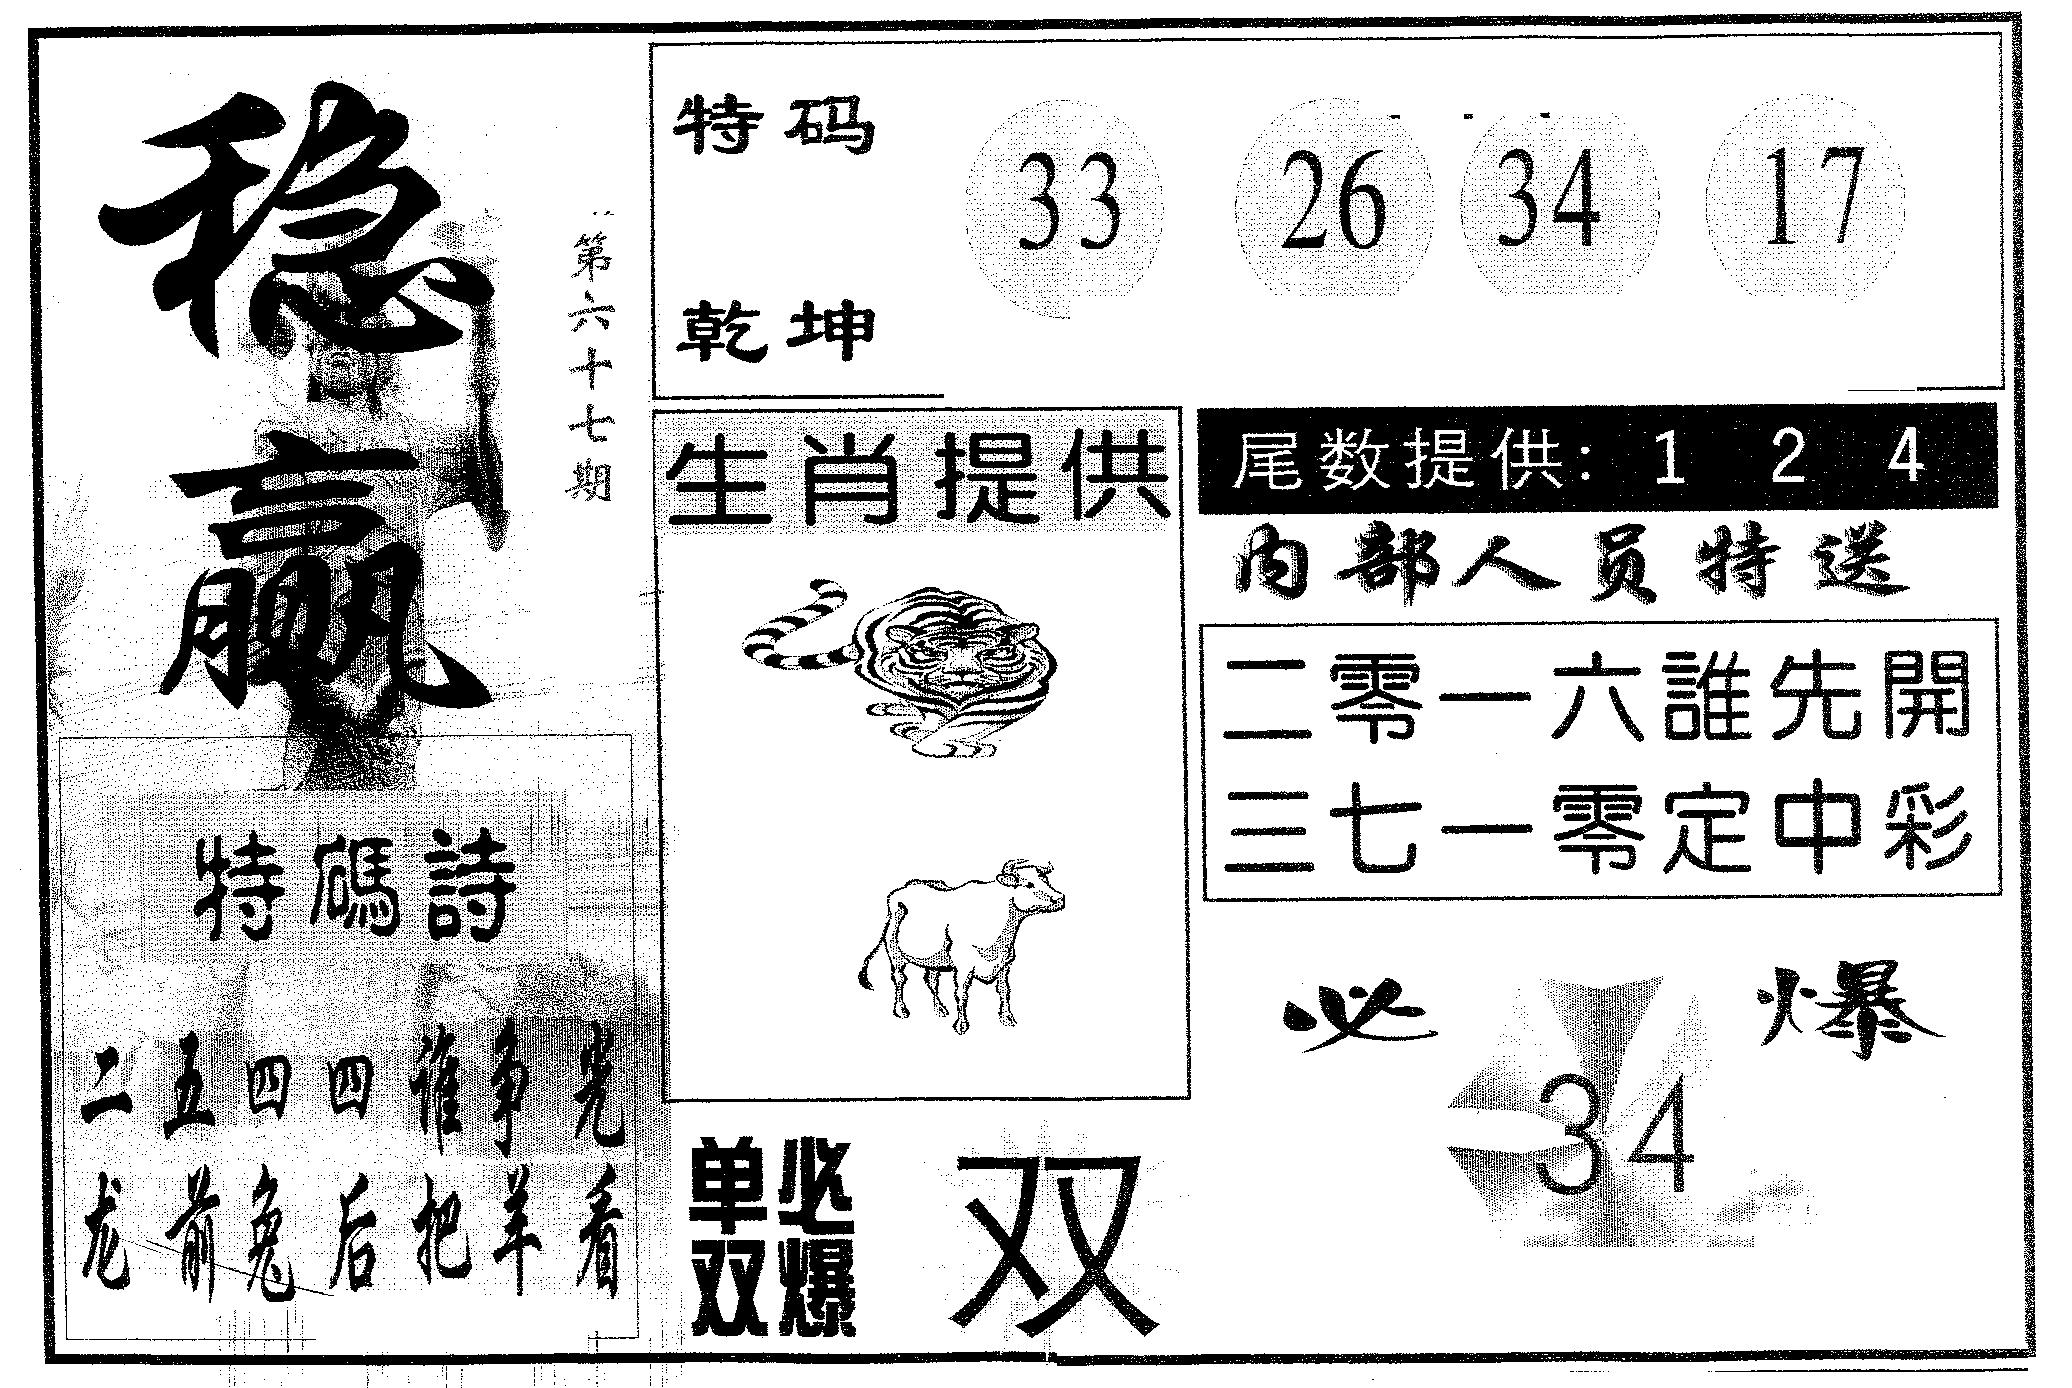 稳赢
第六十七期
特码
乾坤
33 26 34 17
生肖提供
尾数提供: 1 2 4
内部人员特送
二零一六誰先開
三七一零定中彩
特碼詩
二五四四谁争光
龙前兔后把羊看
单双
必爆
双
必爆
34